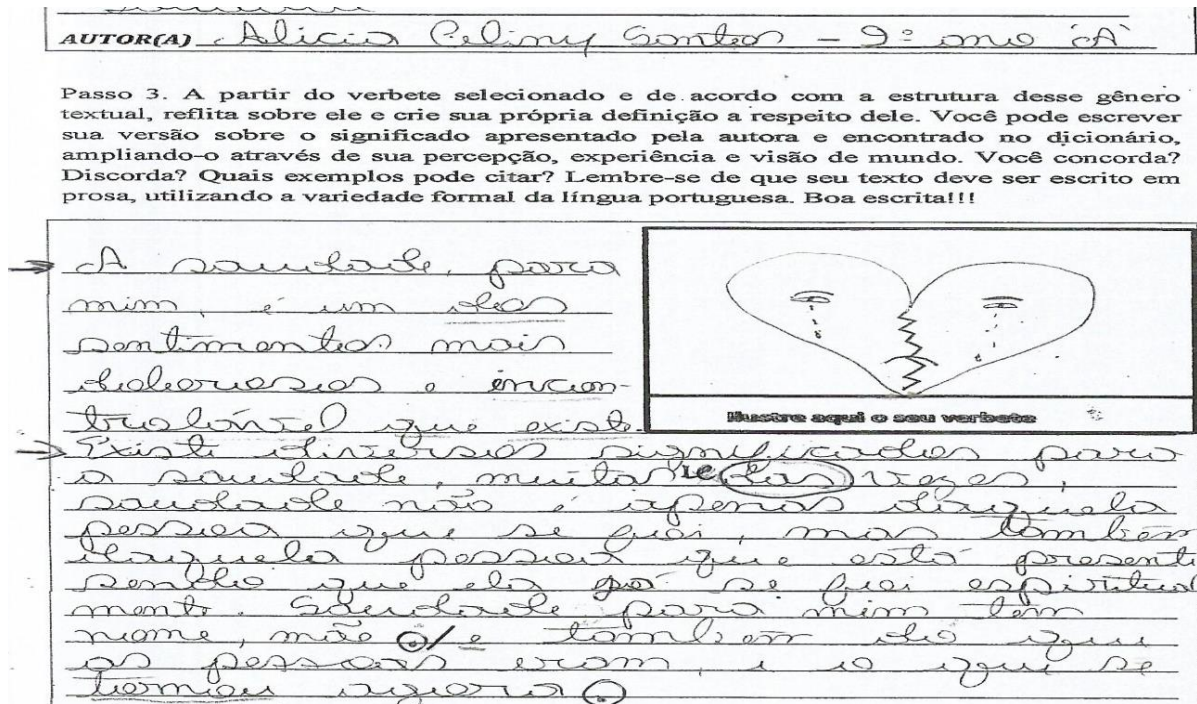 AUTOR(A) Alicia Celiny Santos - 9º ano "A"
Passo 3. A partir do verbete selecionado e de acordo com a estrutura desse gênero
textual, reflita sobre ele e crie sua própria definição a respeito dele. Você pode escrever
sua versão sobre o significado apresentado pela autora e encontrado no dicionário,
ampliando-o através de sua percepção, experiência e visão de mundo. Você concorda?
Discorda? Quais exemplos pode citar? Lembre-se de que seu texto deve ser escrito em
prosa, utilizando a variedade formal da língua portuguesa. Boa escrita!!!
A saudade, para
mim, é um dos
sentimentos mais
dolorosos e
que existe.
Ilustre aqui o seu verbete
Existe diversos significados para
a saudade, muitas das vezes,
saudade não é apenas daquela
pessoa que se foi, mas também
daquela pessoa que está presente
sendo que ela já se foi espiritual
mente. Saudade para mim tem
nome, mãe e também do que
as pessoas eram, e o que se
tornou agora.